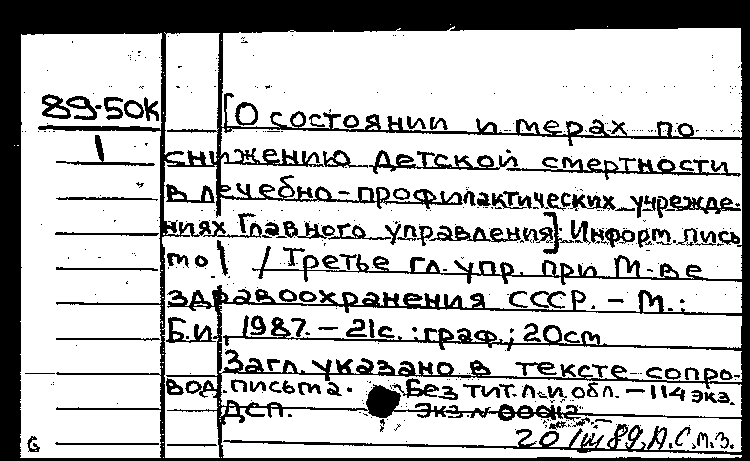 89-50К
1
[О состоянии и мерах по
снижению детской смертности
в лечебно-профилактических учрежде-
ниях Главного управления]: Информ. пись
мо / Третье гл. упр. при М-ве
здравоохранения СССР. - М.:
Б.и., 1987. - 21с. : граф.; 20см.
Загл. указано в тексте сопро-
вод. письма. Без тит.л. и обл. - 114 экз.
ДСП. Экз. N 00042
20/III 89, А.С.м.з.
G